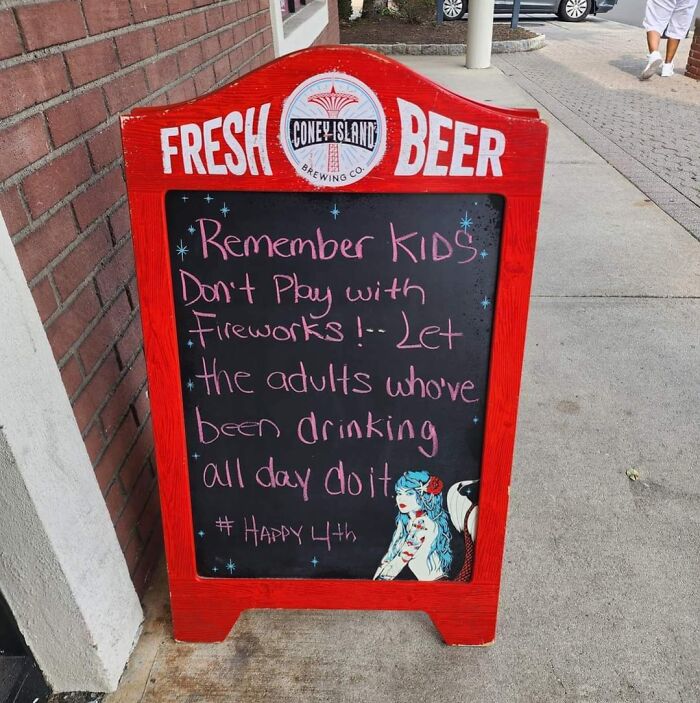 FRESH CONEY ISLAND BEER
BREWING CO.
Remember KIDS
Don't Play with
Fireworks!-- Let
the adults who've
been drinking
all day do it
# HAPPY 4th